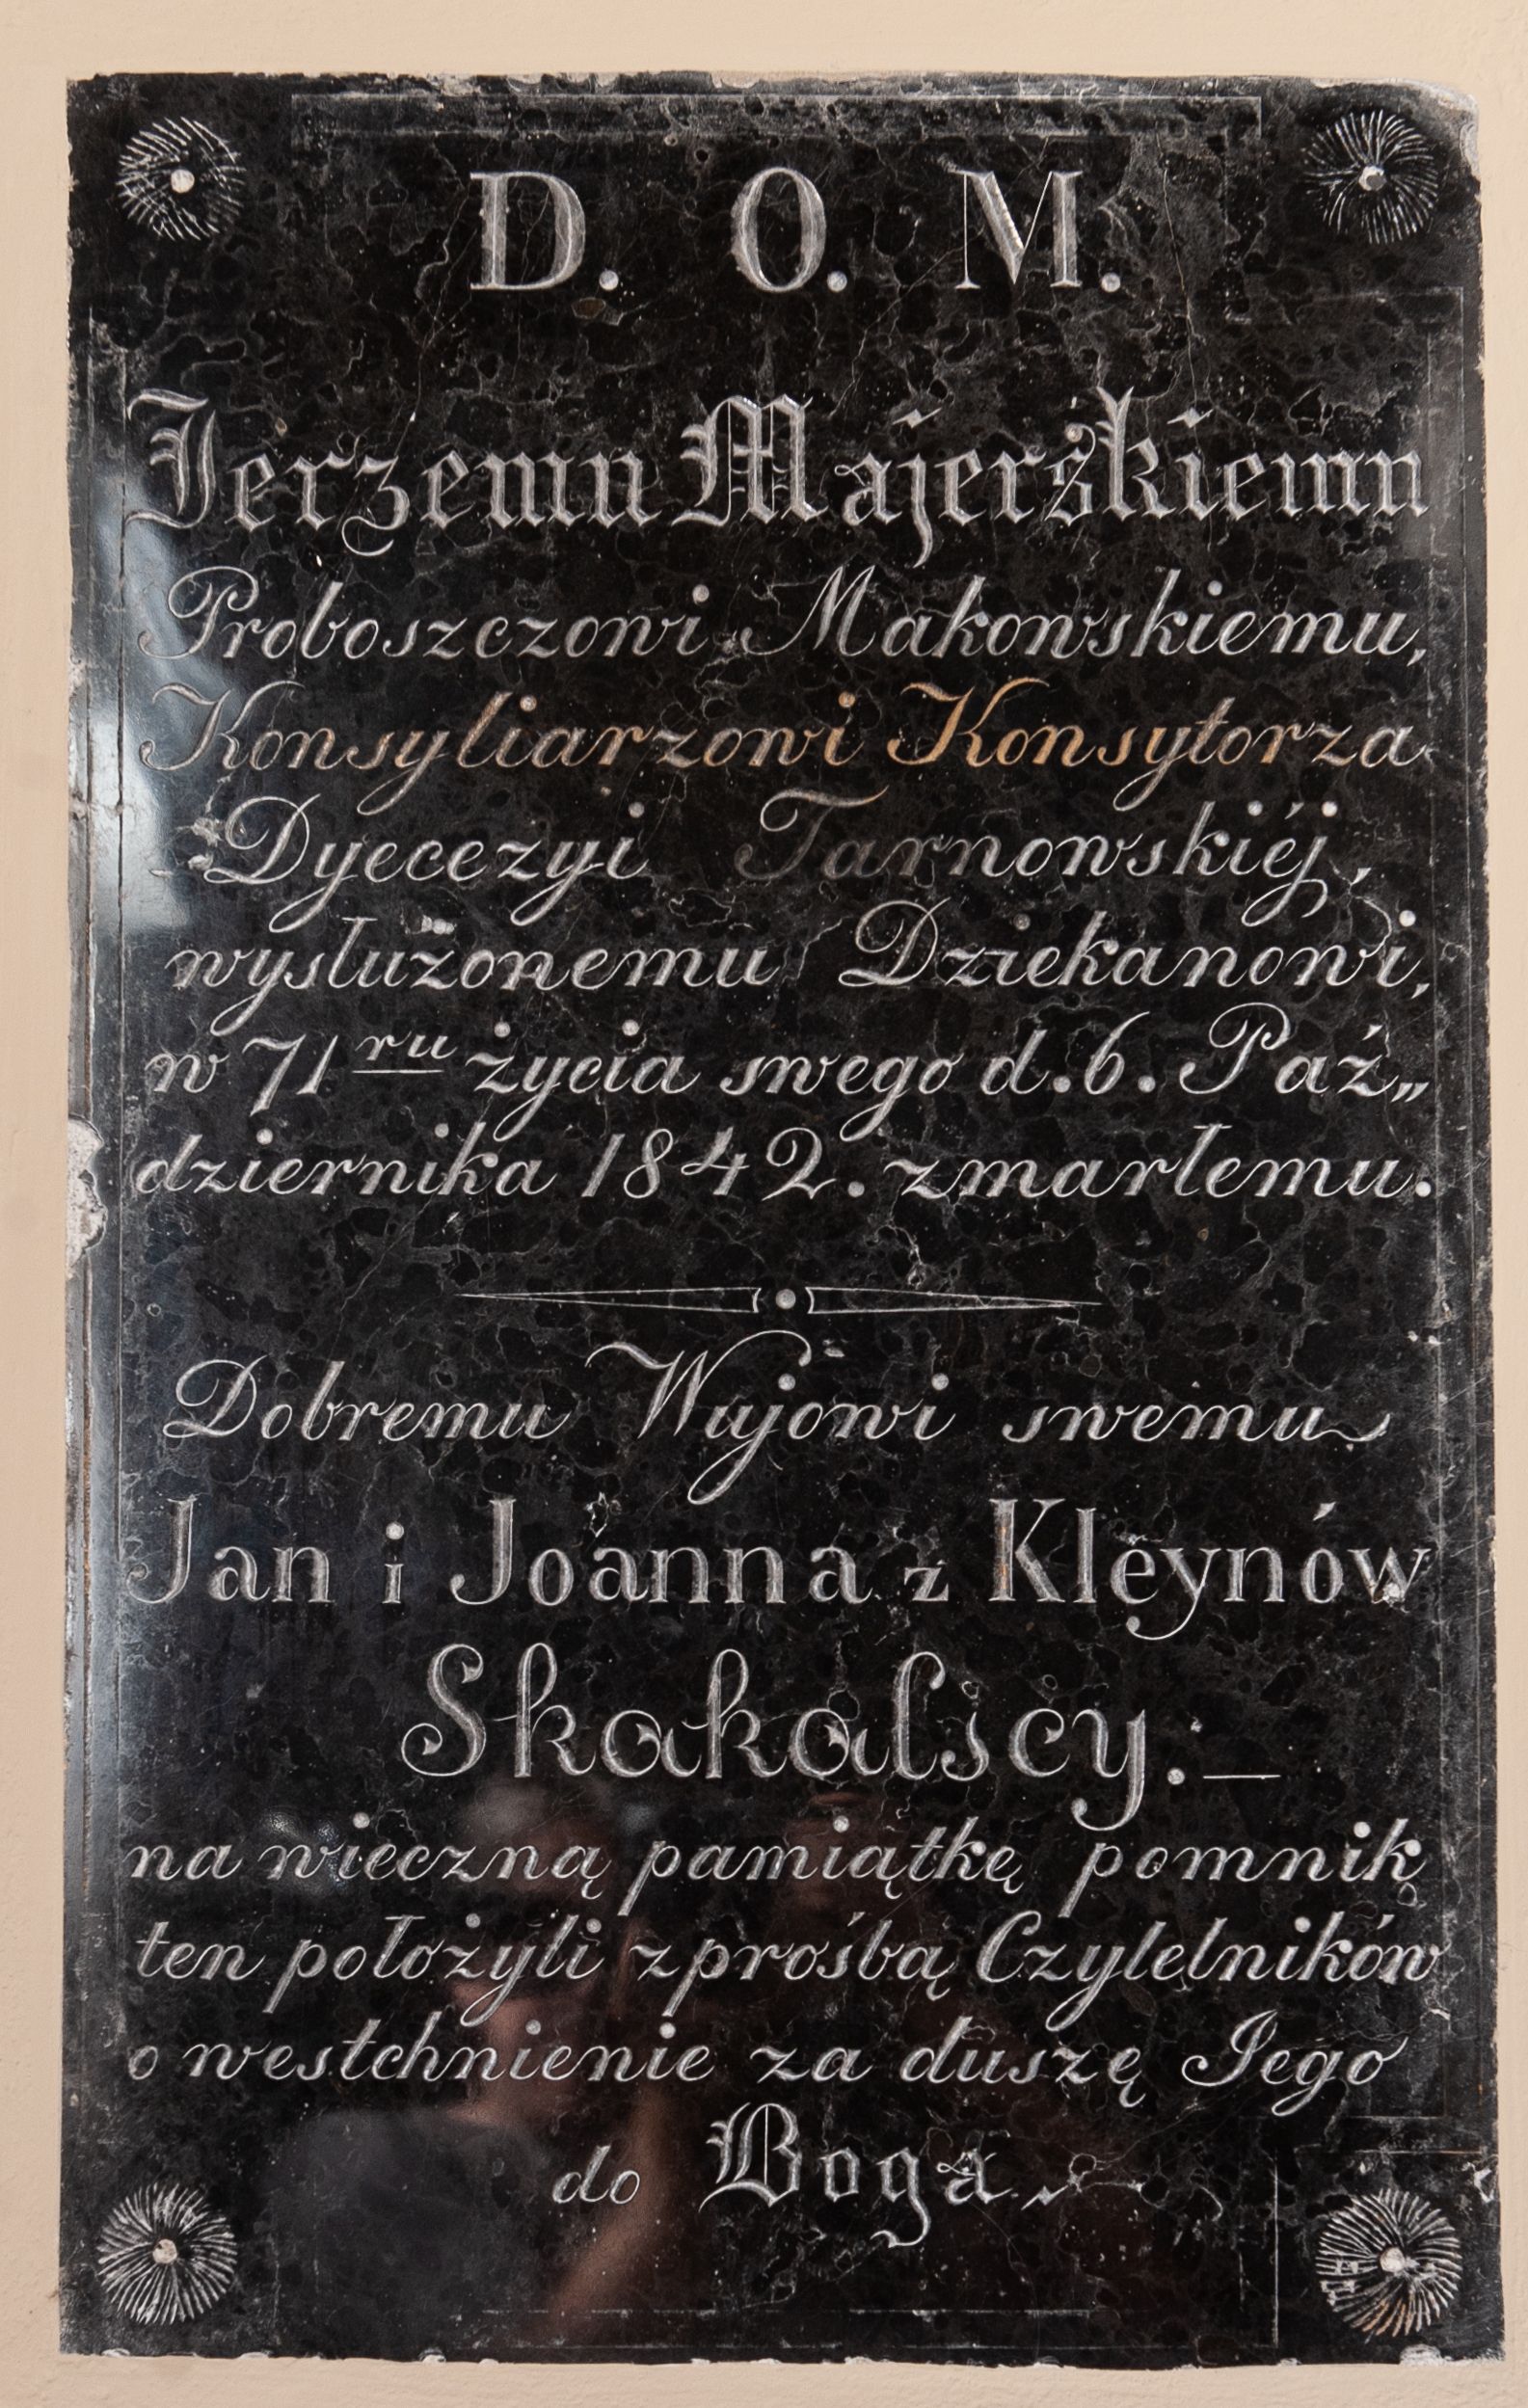 D. O. M.
Jerzemu Majerskiemu
Proboszczowi Makowskiemu,
Konsyliarzowi Konsytorza
Dyecezyi Tarnowskiéj,
wysłużonemu Dziekanowi,
w 71 ru życia swego d. 6. Paź„
dziernika 1842. zmarłemu.
Dobremu Wujowi swemu
Jan i Joanna z Kleynów
Skakalscy. —
na wieczną pamiątkę pomnik
ten położyli z prośbą Czytelników
o westchnienie za duszę Jego
do Boga.